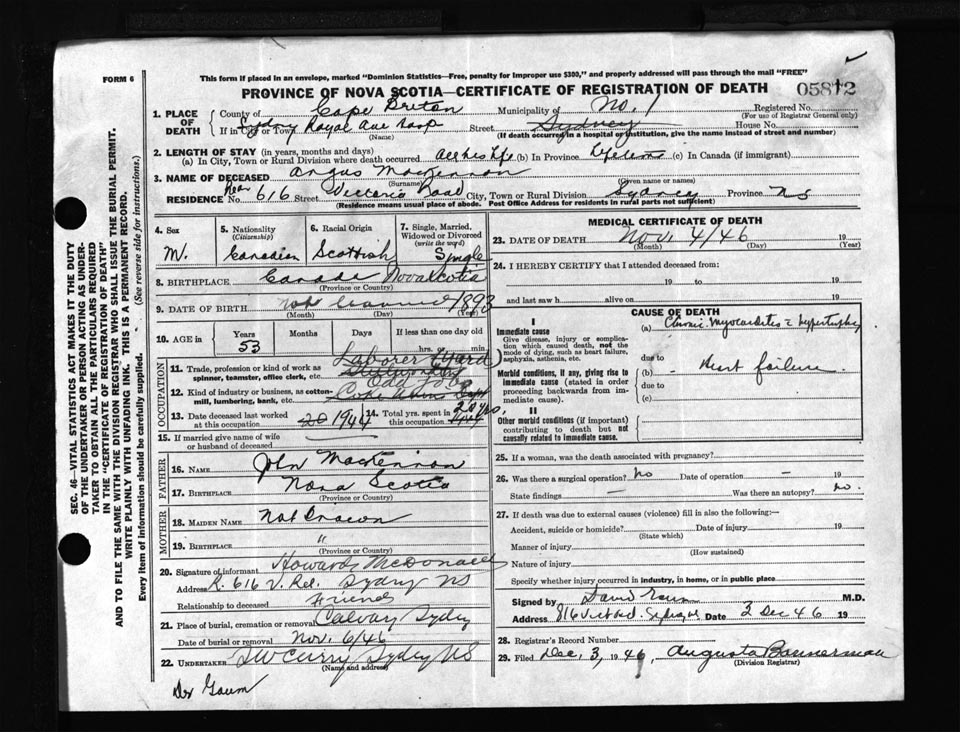 FORM 6
This form if placed in an envelope, marked "Dominion Statistics—Free, penalty for improper use $300," and properly addressed will pass through the mail "FREE"
PROVINCE OF NOVA SCOTIA—CERTIFICATE OF REGISTRATION OF DEATH 05812
1. PLACE OF DEATH
County of Cape Breton Municipality of No. 1 Registered No.
(For use of Registrar General only)
If in City or Town Sydney Royal Ave Street Sydney House No.
(Name) (If death occurred in a hospital or institution, give the name instead of street and number)
2. LENGTH OF STAY (in years, months and days)
(a) In City, Town or Rural Division where death occurred all his life (b) In Province Lifetime (c) In Canada (if immigrant)
3. NAME OF DECEASED Angus MacKennon
(Surname) (Given name or names)
RESIDENCE No. Rear 616 Street Victoria Road City, Town or Rural Division Sydney Province NS
(Residence means usual place of abode. Post Office Address for residents in rural parts not sufficient)
4. Sex
M.
5. Nationality
(Citizenship)
Canadian
6. Racial Origin
Scottish
7. Single, Married, Widowed or Divorced
(write the word)
Single
8. BIRTHPLACE Canada Nova Scotia
(Province or Country)
9. DATE OF BIRTH Not 1893
(Month) (Day) (Year)
10. AGE in Years Months Days If less than one day old
53 hrs. or min.
OCCUPATION
11. Trade, profession or kind of work as Laborer (Yard)
spinner, teamster, office clerk, etc.
12. Kind of industry or business, as cotton- Odd Jobs
mill, lumbering, bank, etc. Coke Ovens Dept
13. Date deceased last worked at this occupation 20 1944
14. Total yrs. spent in this occupation 20 yrs.
15. If married give name of wife or husband of deceased
FATHER
16. NAME John MacKennon
17. BIRTHPLACE Nova Scotia
(Province or Country)
MOTHER
18. MAIDEN NAME Not Known
19. BIRTHPLACE "
(Province or Country)
20. Signature of informant Howard McDonald
Address R. 616 V. Rd. Sydney NS
Relationship to deceased Friend
21. Place of burial, cremation or removal Calvary Sydney
Date of burial or removal Nov. 6/46
22. UNDERTAKER TW Curry Sydney NS
(Name and address)
Dr Gaum
MEDICAL CERTIFICATE OF DEATH
23. DATE OF DEATH Nov. 4/46 19
(Month) (Day) (Year)
24. I HEREBY CERTIFY that I attended deceased from:
19 to 19
and last saw h alive on 19
CAUSE OF DEATH
I
Immediate cause
Give disease, injury or complication which caused death, not the mode of dying, such as heart failure, asphyxia, asthenia, etc.
(a) Chronic Myocarditis c hypertrophy
due to
Morbid conditions, if any, giving rise to immediate cause (stated in order proceeding backwards from immediate cause).
(b) - Heart failure
due to
(c)
II
Other morbid conditions (if important) contributing to death but not causally related to immediate cause.
25. If a woman, was the death associated with pregnancy?
26. Was there a surgical operation? No Date of operation — 19
State findings — Was there an autopsy? No.
27. If death was due to external causes (violence) fill in also the following:—
Accident, suicide or homicide? Date of injury 19
(State which)
Manner of injury
(How sustained)
Nature of injury
Specify whether injury occurred in industry, in home, or in public place
Signed by David M.D.
Address 816 Vict Rd. Sydney NS Date 2 Dec 46 19
28. Registrar's Record Number
29. Filed Dec. 3, 1946, Augusta Bannerman
(Division Registrar)
SEC. 46—VITAL STATISTICS ACT MAKES IT THE DUTY
OF THE UNDERTAKER OR PERSON ACTING AS UNDER-
TAKER TO OBTAIN ALL THE PARTICULARS REQUIRED
IN THE "CERTIFICATE OF REGISTRATION OF DEATH"
AND TO FILE THE SAME WITH THE DIVISION REGISTRAR WHO SHALL ISSUE THE BURIAL PERMIT.
WRITE PLAINLY WITH UNFADING INK. THIS IS A PERMANENT RECORD.
Every item of information should be carefully supplied. (See reverse side for instructions.)